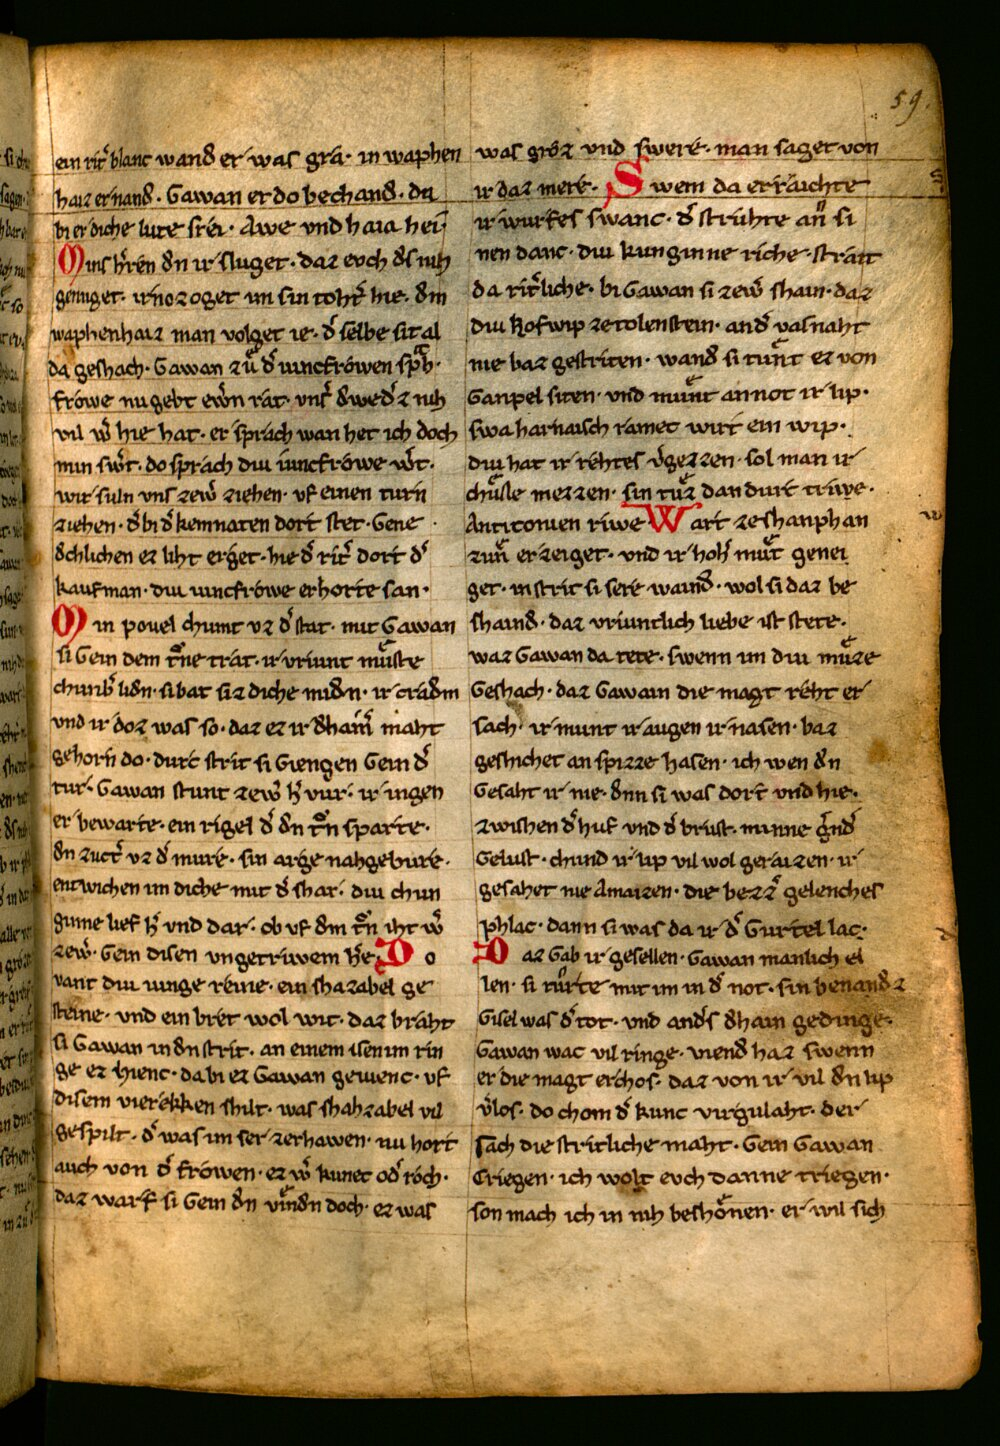 59.
ein rit͛ blanc wand er was gra· in waphen
haiz er nand· Gawan er do bechand· du
bi er diche lute srei· Awe und haia hei·
Mins h͛ren dn ir sluget· daz evch ds nih
genuget· irn͛ozoget im sin toht͛ hie· dm
waphenhaiz man volget ie· d͛ selbe sit al
da geshach· Gawan zů d͛ iuncfrowen sp͛h·
frowe nu gebt ew͛n rat· vns͛ dwed͛z nih
vil w͛ hie hat· er sprach wan het ich doch
min sw͛t· do sprach diu iuncfrowe w͛t·
wir suln vns zew͛ ziehen· vf einen turn
ziehen· d͛ bi d͛ kemnaten dort stet· Gene
dchlichen ez liht erget· hie d͛ rit͛ dort d͛
kaufman· diu iuncfrowe erhorte san·
Min povel chumt vz d͛ stat· mit Gawan
si Gein dem t͛ne trat· ir vriunt můste
chumb͛ lidn· si bat siz diche midn· ir cradm
vnd ir doz was so· daz ez ir dhain͛ maht
gehorn do· durc strit si Giengen Gein d͛
tur· Gawan stunt zew͛ h͛ vur· ir ingen
er bewarte· ein rigel d͛ dn t͛n sparte·
dn zuct͛ vz d͛ mure· sin arge nahgebure·
entwichen im diche mit d͛ shar· diu chun
ginne lief h͛ vnd dar· ob vf dm t͛n iht w͛
zew͛· Gein disen vngetriwem h͛e· Do
vant diu iunge reine· ein shazabel ge
steine· vnd ein bret wol wit· daz braht
si Gawan in dn strit· an einem isenim rin
ge ez hienc· da bi ez Gawan gevienc· vf
disem vierekken shilt· was shahzabel vil
gespilt· d͛ was im ser zerhawen· nu hort
auch von d͛ frowen· ez w͛ kunec od͛ roch·
daz warf si Gein dn vindn doch· ez was
was groz vnd swere· man saget von
ir daz mere· Swem da erraichte
ir wurfes swanc· d͛ struhte an si
nen danc· diu kunginne riche· strait
da rit͛liche· bi Gawan si zew͛ shain· daz
diu kofwip zetolenstein· and͛ vasnaht
nie baz gestriten· wand si tunt ez von
Ganpel siten· vnd munt an not ir lip·
swa harnaisch ramec wirt ein wip·
diu hat ir rehtes v͛gezzen· sol man ir
chůsle mezzen· sin tůz dan durt triwe·
Antitonien riwe· Wart zeshanphan
zun͛ erzeiget· vnd ir hoh͛ můt genei
get· in strit si sere waind͛· wol si daz be
shaind· daz vriuntlich liebe ist stete·
waz Gawan da tete· swenn im diu můze
Geshach· daz Gawain die magt reht er
sach· ir munt ir augen ir nasen· baz
geshichet an spizze hasen· ich wen dn
Gesaht ir nie· dnn si was dort vnd hie·
zwishen d͛ huf vnd d͛ brust· minne g͛nd͛
Gelust· chund ir lip vil wol geraizen· ir
gesahet nie Amaizen· die bezz͛ gelenches
phlac· dann si was da ir d͛ Gurtel lac·
Daz Gab ir gesellen· Gawan manlich el
len· si turte mit im in d͛ not· sin benandz
Gisel was d͛ tot· vnd and͛s dhain gedinge·
Gawan wac vil ringe· viend haz swenn
er die magt erchos· daz von ir vil dn lip
v͛los· do chom d͛ kunc virgulaht· der
sach die stritliche maht· Gein Gawan
Criegen· ich wolt evch danne triegen·
son mach ich in nih beshönen· er wil sich